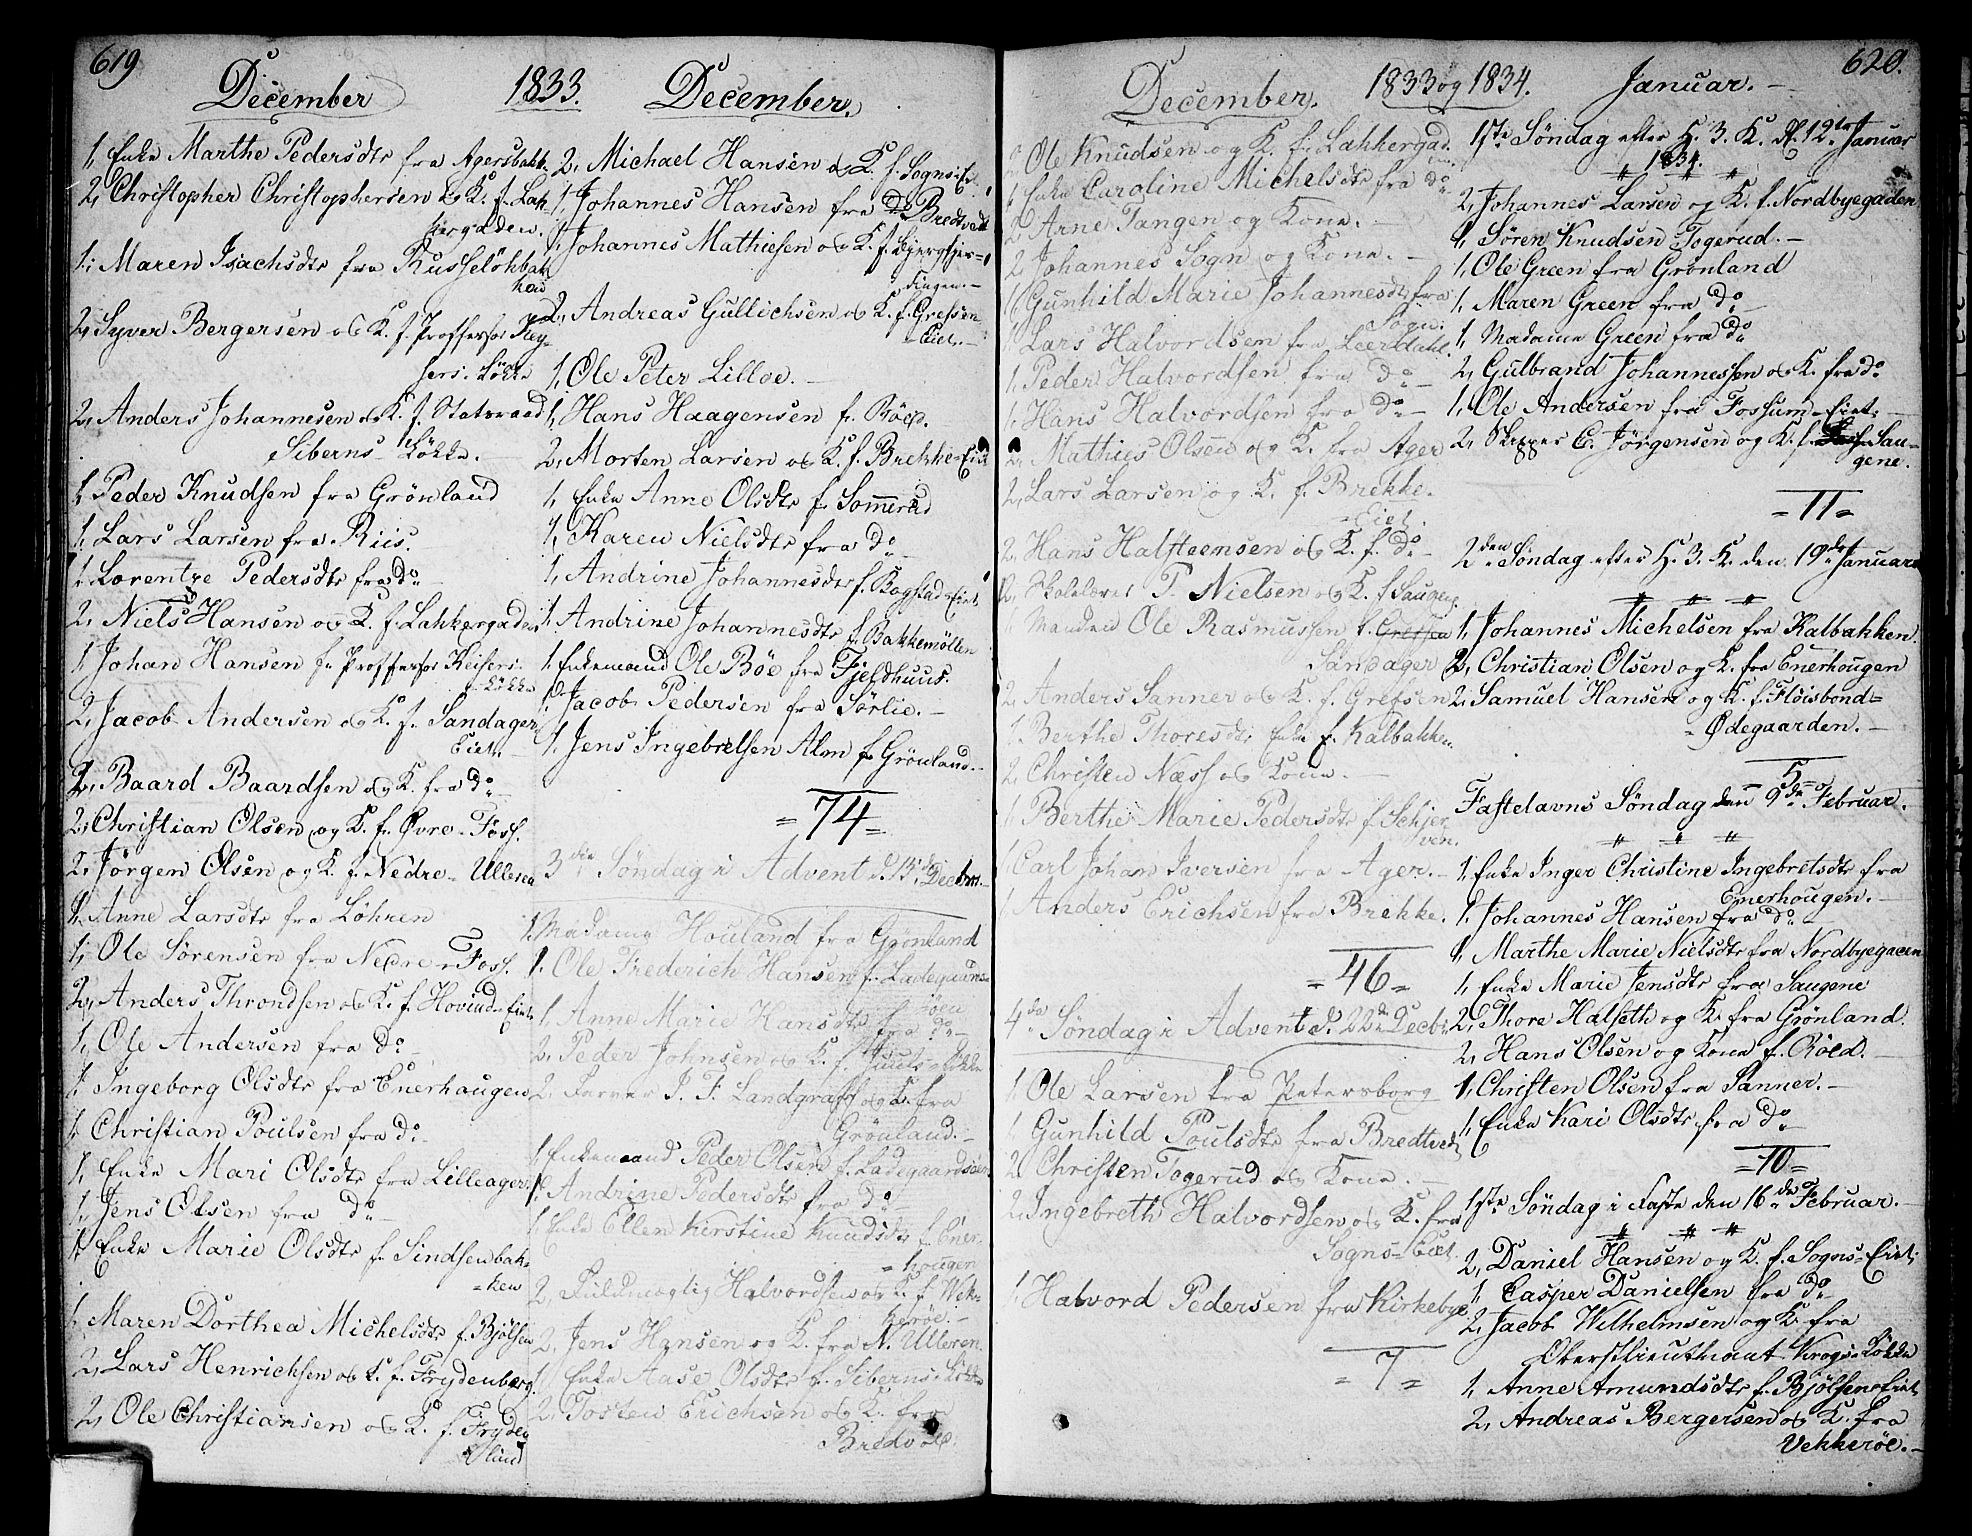 619
December 1833. December.
1, Enke Marthe Pedersdtr fra Agersbakk.
2, Christopher Christophersen og K. f. Lak-
kergaden.
1, Maren Isachsdtr fra Russeløkbak
ken
2, Syver Bergersen og K. f. Proffessor Key-
sers Løkke
2, Anders Johannesen og K. f. Statsraad
Siberns Løkke.
1, Peder Knudsen fra Grønland
1, Lars Larsen fra Riis.
1, Lorentze Pedersdtr fra do
2, Niels Hansen og K. f. Lakkergaden
1, Johan Hansen fr Proffessor Keisers
Løkke
2, Jacob Andersen og K. f. Sandager
Eiet.
2, Baard Baardsen og K. fra do
2, Christian Olsen og K. fr Øvre-Foss.
2, Jørgen Olsen og K. f. Nedre-Ulleren
1, Anne Larsdtr fra Løhren
1, Ole Sørensen fra Nedre-Foss.
2, Anders Throndsen og K. f. Hovind-Eiet
1, Ole Andersen fra do
1, Ingeborg Olsdtr fra Enerhaugen
1, Christian Poulsen fra do
1, Enke Mari Olsdtr fra Lilleager
1, Jens Olsen fra do
1, Enke Marie Olsdtr f. Sindsenbak-
ken
1, Maren Dorthea Michelsdtr f. Bjølsen
2, Lars Henrichsen og K. f. Frydenberg.
2, Ole Christiansen og K. f. Fryden
lund
2, Michael Hansen og K. f. Sogns-Ei
1, Johannes Hansen fra do Bredvedt
1, Johannes Mathiesen og K. f. Bjergsjer-
dingen.
2, Andreas Gullichsen og K. f. Grefsen
Eiet.
1, Ole Peter Lilloe.
1, Hans Haagensen f. Røed.
2, Morten Larsen og K. f. Brekke-Eiet
1, Enke Anne Olsdtr f. Sommerud
1, Karen Nielsdtr fra do
1, Andrine Johannesdtr f. Bogstad-Eiet
1, Andrine Johannesdtr f. Bakkemøllen
1, Enkemand Ole Bøe fra Fjeldhuus.
1, Jacob Pedersen fra Sørlie.
1, Jens Ingebretsen Alm f. Grønland.
=74=
3die Søndag i Advent d. 15de Decbr.
1, Madame Houland fra Grønland
1, Ole Frederich Hansen f. Ladegaards
øen
1, Anne Marie Hansdtr fra do
2, Peder Johnsen og K. f. Juuls-Løkke
2, Farver I. F. Landgraff og K. fra
Grønland.
1, Enkemand Peder Olsen f. Ladegaardsøen
1, Andrine Pedersdtr fra do
1, Enke Ellen Kirstine Knudsdtr f. Ener-
hougen
2, Fuldmægtig Halvordsen og K. f. Vek-
kerøe.
2, Jens Hansen og K. fra N. Ulleren.
1, Enke Aase Olsdtr f. Siberns Løkke
2, Tosten Erichsen og K. fra
Bredvold.
620.
December. 1833 og 1834. Januar.
2, Ole Knudsen og K. f. Lakkergad.
1, Enke Caroline Michelsdtr fra do
2, Arne Tangen og Kone.
2, Johannes Sogn og Kone.
1, Gunhild Marie Johannesdtr fra
Sogn.
1, Lars Halvordsen fra Leerdahl.
1, Peder Halvordsen fra do
1, Hans Halvordsen fra do
2, Mathies Olsen og K. fra Ager
2, Lars Larsen og K. f. Brekke.
Eiet.
2, Hans Halsteensen og K. f. do
2, Skolelærer P. Nielsen og K. f Saugene.
1, Manden Ole Rasmussen f. Grefsen
Sandager
2, Anders Sanner og K. f. Grefsen
1, Berthe Thoresdtr Enke f. Kalbakken
2, Christen Næss og Kone.
1, Berthe Marie Pedersdtr f. Schjer
ven.
1, Carl Johan Iversen fra Ager.
1, Anders Erichsen fra Brekke.
=46=
4de Søndag i Advent d. 22de Decbr.
1, Ole Larsen fra Petersborg
1, Gunhild Poulsdtr fra Bredtvedt
2, Christen Togerud og Kone.
2, Ingebreth Halvordsen og K. fra
Sogns-Eiet
1, Halvord Pedersen fra Kirkebye
=7=
1ste Søndag efter H. 3. K. d. 12te Januar
1834.
2, Johannes Larsen og K. f. Nordbyegaden
1, Søren Knudsen Togerud.
1, Ole Green fra Grønland
1, Maren Green fra do
1, Madame Green fra do
2, Gulbrand Johannessen og K. fra do
1, Ole Andersen fra Fossum-Eiet
2, Skipper C. Jørgensen og K. f. Sau-
gene.
=11=
2den Søndag efter H. 3. K. den 19de Januar
1, Johannes Michelsen fra Kalbakken
2, Christian Olsen og K. fra Enerhougen
2, Samuel Hansen og K. f. Fløisbond-
Ødegaarden.
5
Fastelavns Søndag den 9de Februar.
1, Enke Inger Christine Ingebretsdtr fra
Enerhougen.
1, Johannes Hansen fra do
1, Marthe Marie Nielsdtr fra Nordbyegaden
1, Enke Marie Jensdtr fra Saugene
2, Thore Halseth og K. fra Grønland.
2, Hans Olsen og Kone f. Røed.
1, Christen Olsen fra Sanner.
1, Enke Kari Olsdtr fra do
=10=
1ste Søndag i Faste den 16de Februar.
2, Daniel Hansen og K. f. Sogns-Eiet
1, Casper Danielsen fra do
2, Jacob Wilhelmsen og K. fra
Oberstlieutnant Krogs-Løkke
1, Anne Amundsdtr f. Bjølsen-Eiet
2, Andreas Bergersen og K. fra
Vekkerøe.